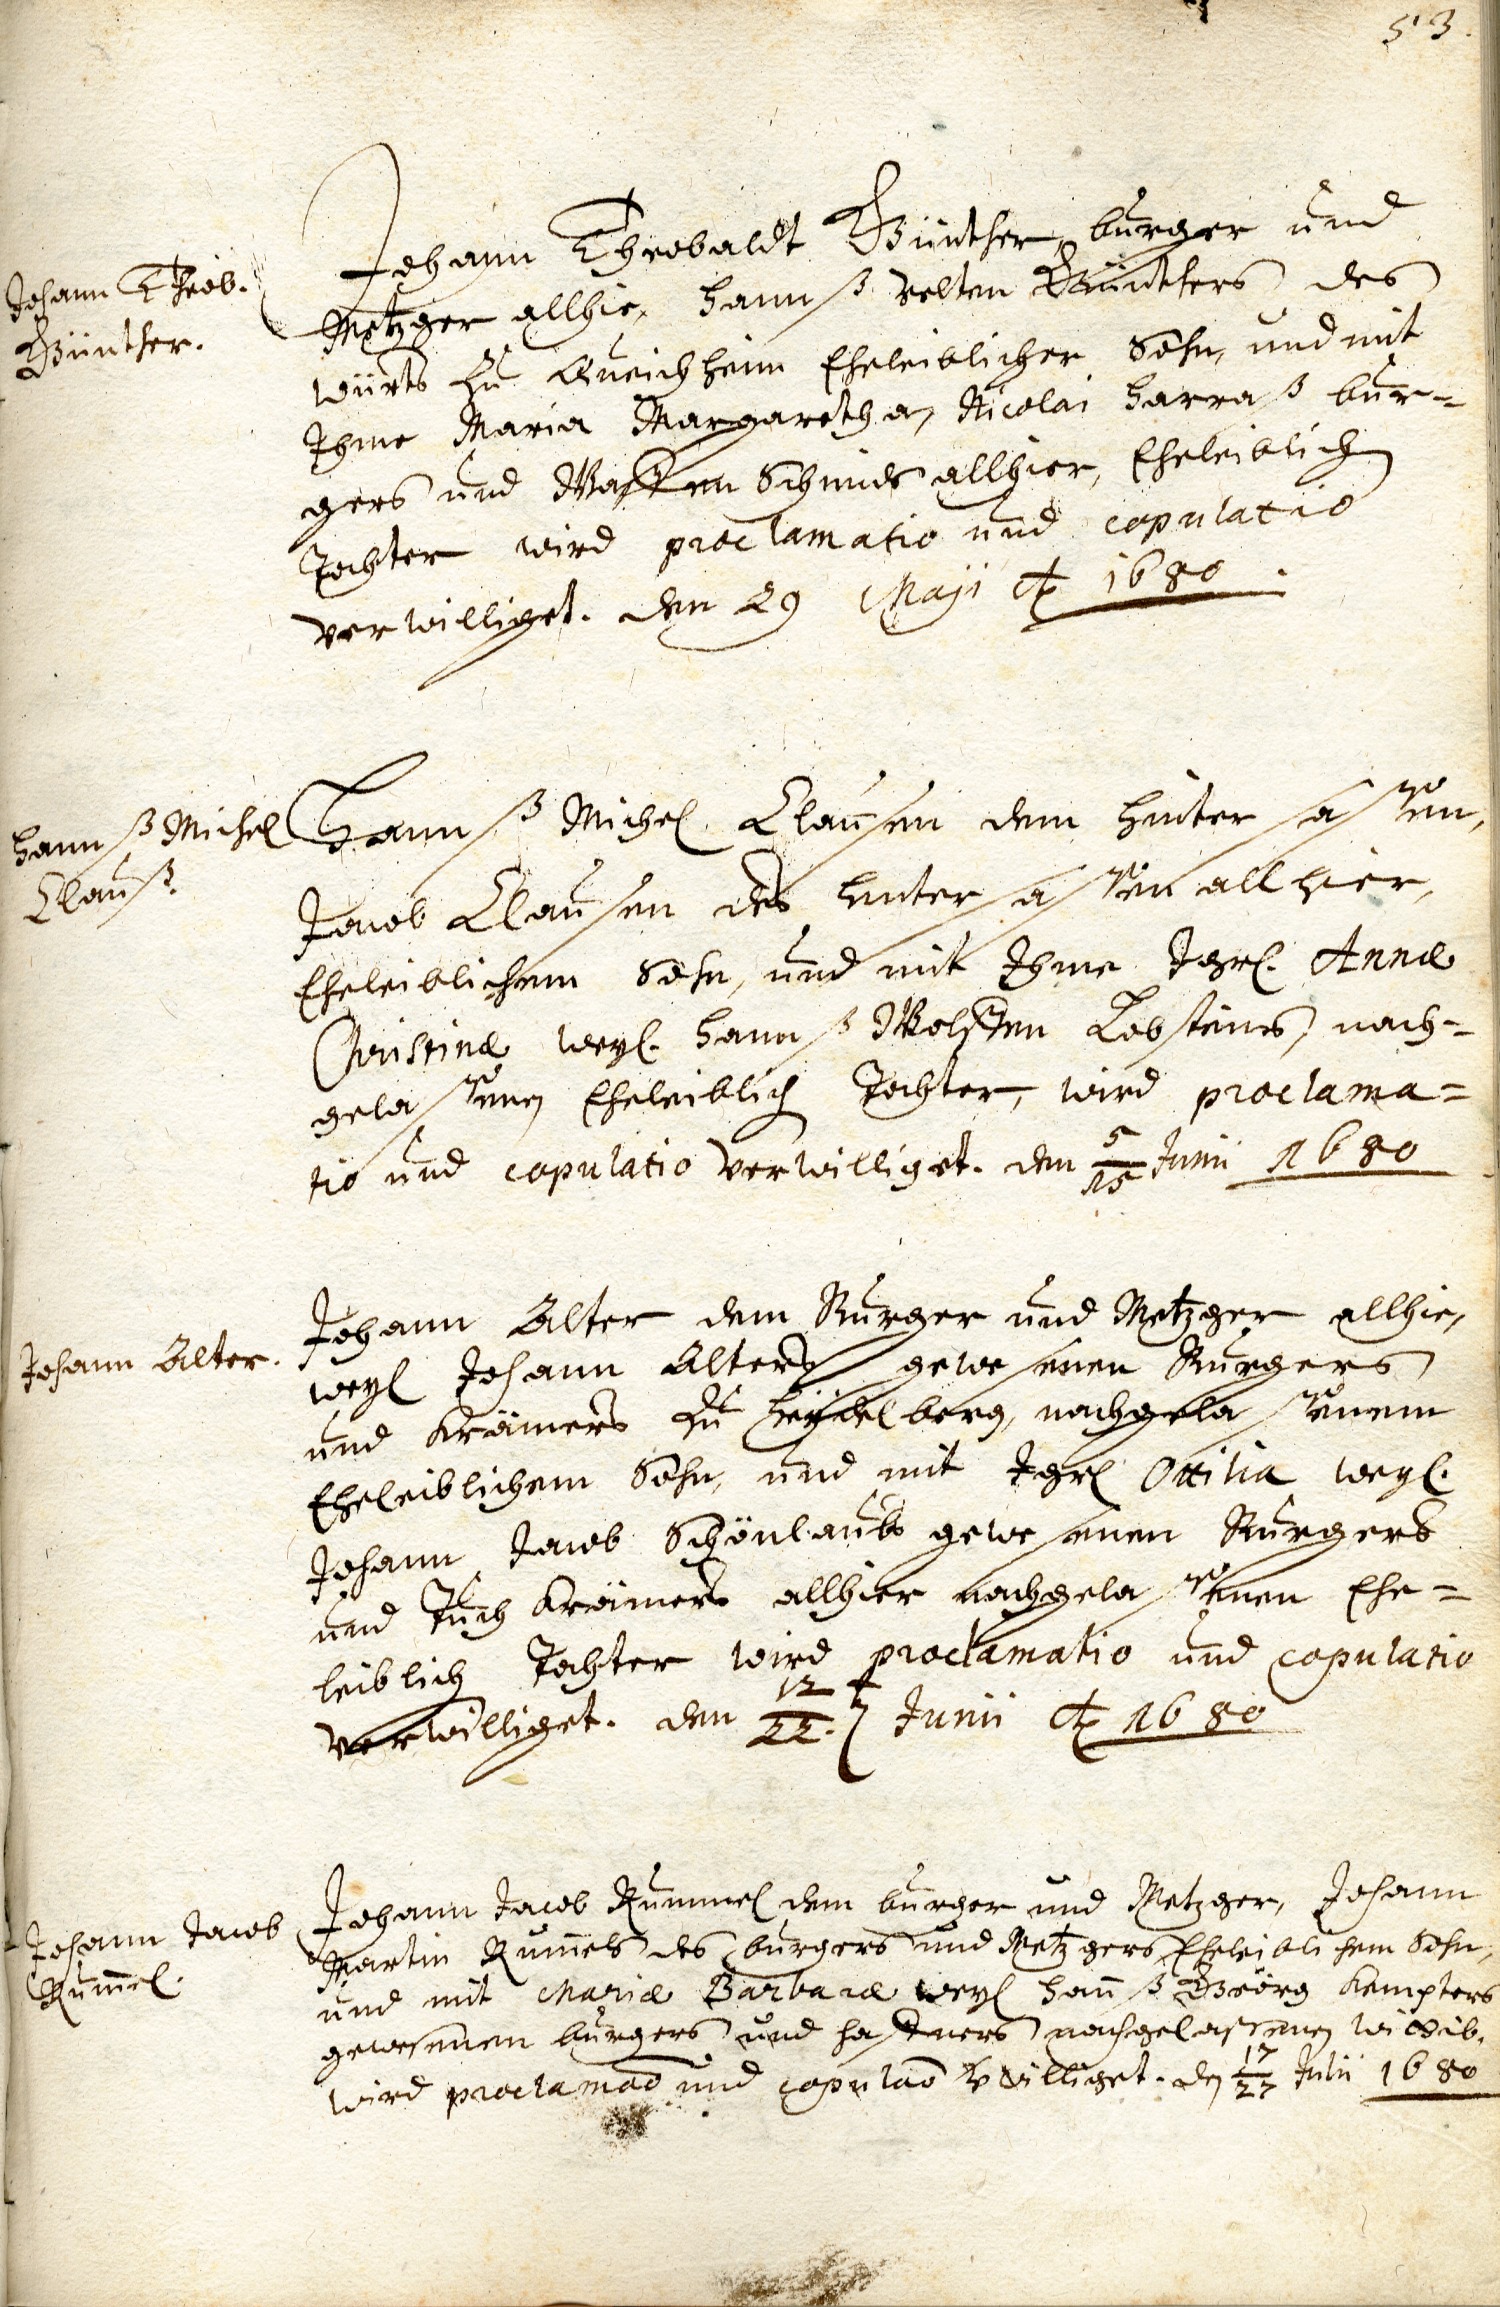 513.
Johann Theob.
Günther.
Johann Theobaldt Günther, burger und
Metzger allhie, Hannß Velten Günthers des
würts zu Queichheim Eheleiblicher Sohn, und mit
Ihme Maria Margaretha, Nicolai Harraß bur-
gers und Waffen Schmids allhier, Eheleiblich
Tochter wird proclamatio und copulatio
verwilliget. den 29 Maji A. 1680.
Hannß Michel
Clauß.
Hannß Michel Clausen dem hintersassen,
Jacob Clausen des hintersassen allhier,
Eheleiblichem Sohn, und mit Ihme Jgfr. Annæ
Christinæ weyl. Hannß Wolffen Lobsteins, nach-
gelassenen Eheleiblich Tochter, wird proclama-
tio und copulatio verwilliget. den 5/15 Junii 1680
Johann Alter.
Johann Alter dem Burger und Metzger allhie,
weyl Johann Alters gewesenen Burgers
und Krämers zu Heydelberg, nachgelassenem
Eheleiblichem Sohn, und mit Jgfr Ottilia weyl.
Johann Jacob Schönlaubs gewesenen Burgers
und Tuch Krämers allhier nachgelassenen Ehe-
leiblich Tochter wird proclamatio und copulatio
verwilliget. den 12/22. Junii A. 1680
Johann Jacob
Rum̄el.
Johann Jacob Rummel dem burger und Metzger, Johann
Martin Rum̄els des burgers und Metzgers Eheleiblichem Sohn,
und mit Mariæ Barbaræ weyl Han̄ß Georg Kempffers
gewesenen burgers und haffners nachgelassenen wittib.
wird proclamaō und copulaō v̄williget. den 17/27 Julii 1680